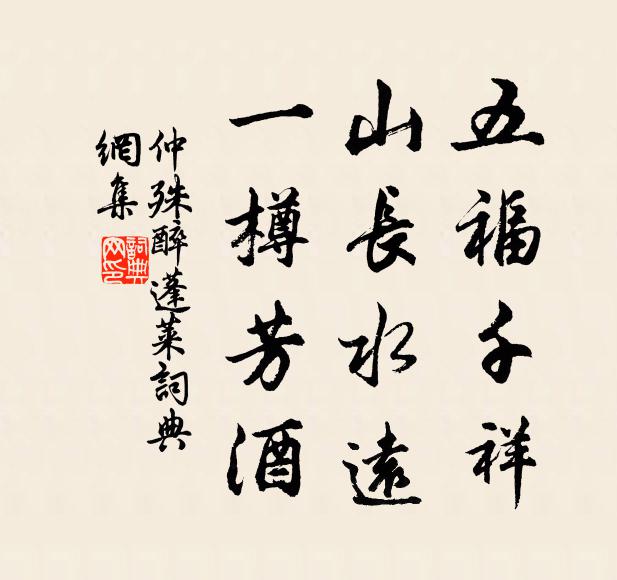 五福千祥
山長水遠
一樽芳酒
仲殊醉蓬萊詞典
網集
詞典網印